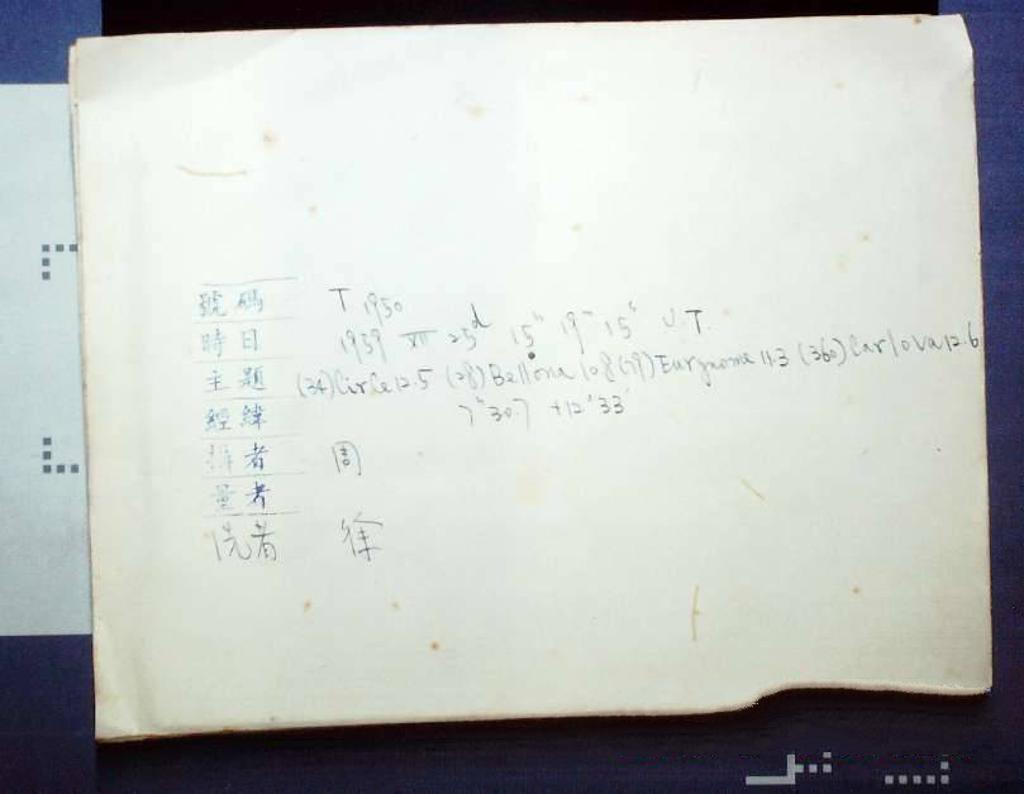 號碼 T 1950
時日 1959 XII 25d 15h 19m 15s U.T.
主題 (34)Circe 12.5 (28)Bellona 10.8 (79)Eurynome 11.3 (360)Carlova 12.6
經緯 7h30.7 +12°33'
攝者 周
量者
洗者 徐